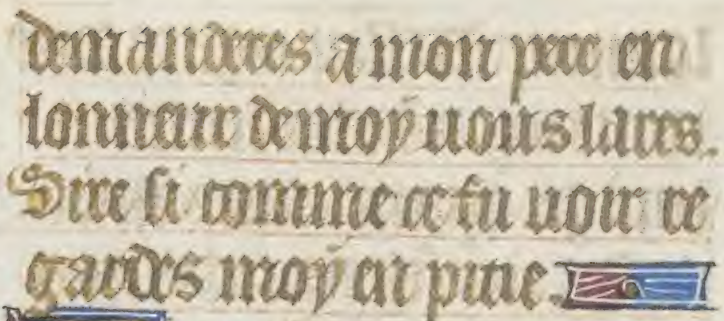 demanderes a mon pere en
lonneur de moy uous lares.
Sire si comme ce fu uoir re
gardes moy en pitie.